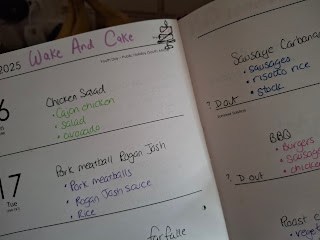 2025 Wake And Cake
6
Chicken Salad
• Cajon chicken
• salad
• avocado
17
Tue
Pork meatball Rogan Josh
• Pork meatballs
• Rogan Josh sauce
• Rice
farfalle
Sausage Carbonar
• sausages
• risotto rice
• stock
? D out
BBQ
• Burgers
• Sausag
• chicken
? D out
Roast
• veget